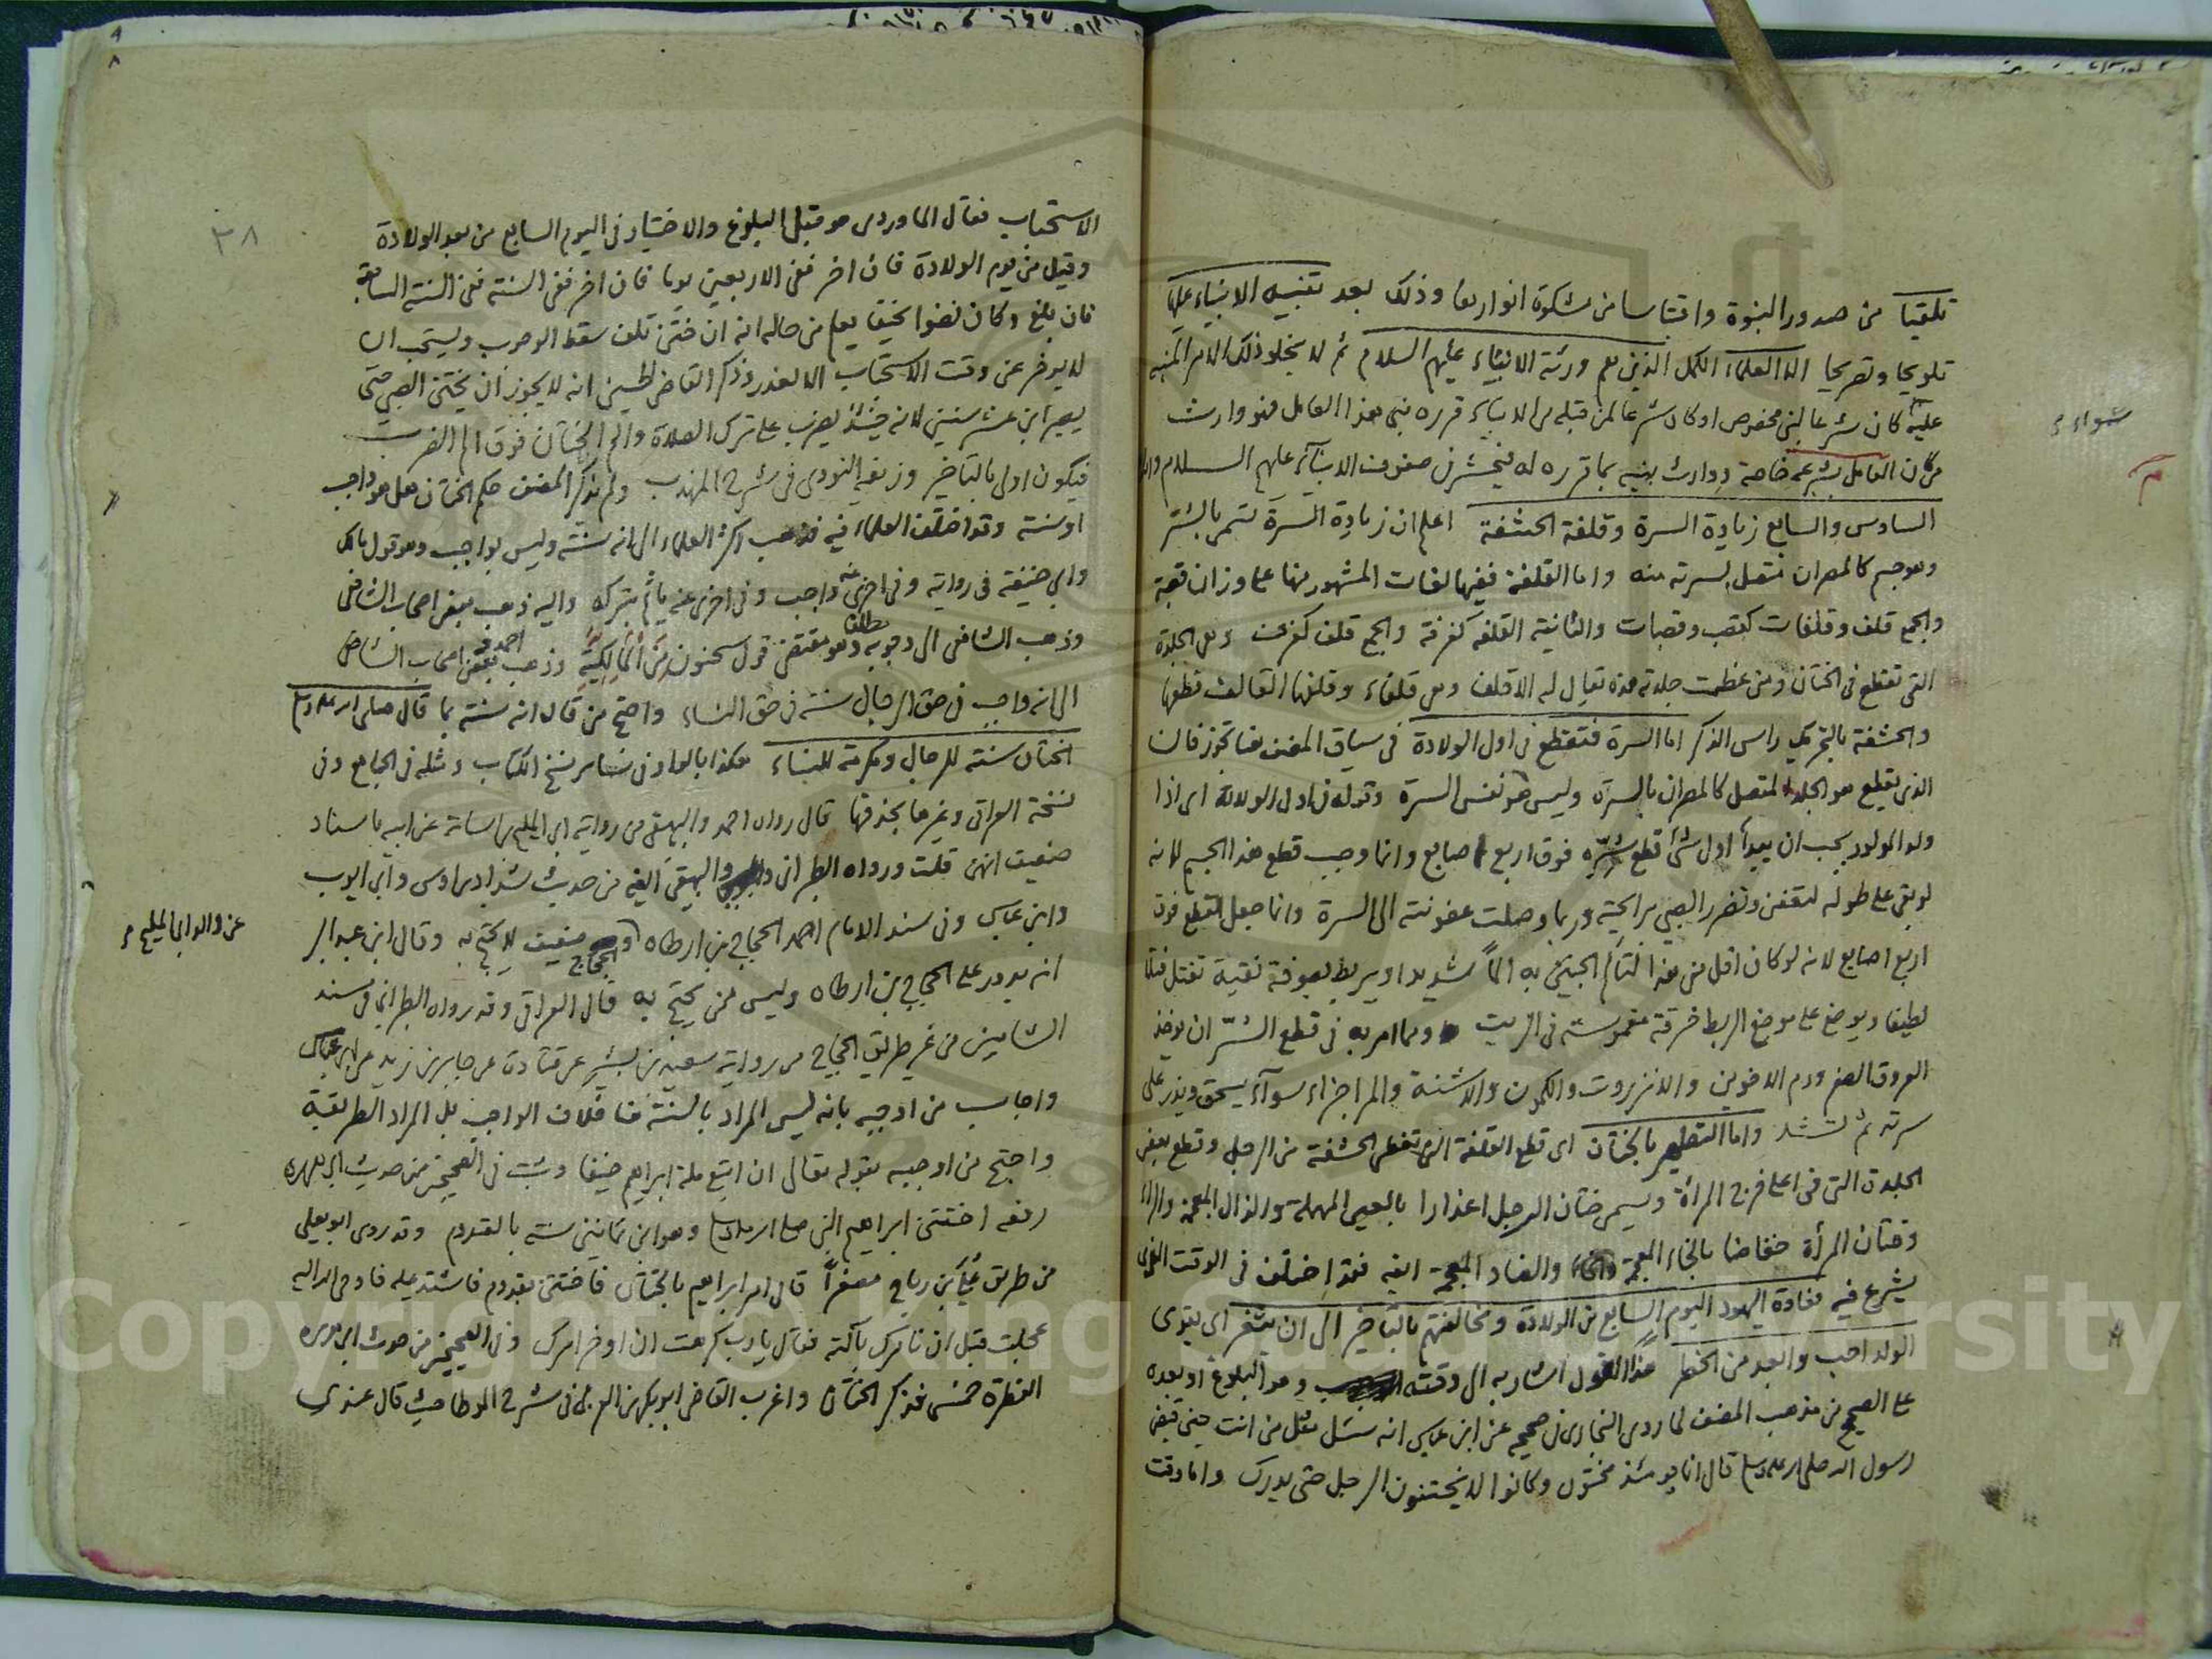 تلقيا من صدور النبوة واقتباسا من مشكوة انوارها وذلك بعد تنبيه الانبياء عليها
تلويحا وتصريحا الا العلماء الكمل الذين هم ورثة الانبياء عليهم السلام ثم لا يخلو ذلك الامر المنبه
عليه كان شرعا لنبي مخصوص او كان شرعا لمن قبله من الانبياء قرره نبي هذا العامل فهو وارث
من كان العامل بشرعه خاصة ووارث نبيه بما قرره له فيحشر في صفوف الانبياء عليهم السلام واما
سواء
السادس والسابع زيادة السرة وقلفة الحشفة اعلم ان زيادة السرة تسمى بالسر
وهو جسم كالمصران متصل بسرته منه واما القلفة ففيها لغات المشهور منها على وزان قصبة
والجمع قلف وقلفات كقصب وقصبات والثانية القلفة كغرفة والجمع قلف كغرف وهي الجلدة
التي تقطع في الختان ومن عظمت جلدته هذه يقال له الاقلف وهي قلفاء وقلفها القالف قطعها
والحشفة بالتحريك راس الذكر اما السرة فتقطع في اول الولادة في سياق المصنف هنا تجوز فان
الذي يقطع هو الجلد المتصل كالمصران بالسرة وليس هو نفس السرة وقوله في اول الولادة اي اذا
ولد المولود يجب ان يبدأ اول شئ قطع سره فوق اربع اصابع وانما وجب قطع هذا الجسم لانه
لو بقي على طوله لتعفن وتضرر الصبي برايحته وربما وصلت عفونته الى السرة وانما جعل القطع فوق
اربع اصابع لانه لو كان اقل من هذا لتألم الجنين به الماً شديدا ويربط بصوفة نقية تفتل فتلا
لطيفا ويوضع على موضع الربط خرقة مغموسة في الزيت ومما امر به في قطع السر ان يوخذ
العروق الصفر ودم الاخوين والانزروت والكمون والاشنة والمر اجزاء سوآء يسحق ويذر على
سرته ثم تشد واما التطهير بالختان اي قطع القلفة التي تغطي الحشفة من الرجل وقطع بعض
الجلدة التي في اعلى فرج المرأة ويسمى ختان الرجل اعذارا بالعين المهملة والذال المعجمة والراء
وختان المرأة خفاضا بالخاء المعجمة والضاد المعجمة ايضا فقد اختلف في الوقت الذي
يشرع فيه فعادة اليهود اليوم السابع من الولادة ومخالفتهم بالتأخير الى ان يثغر اي يقوى
الولد احب وابعد من الخطر هذا القول اشار به الى وقته وهو البلوغ او بعده
على الصحيح من مذهب المصنف لما روى البخاري في صحيحه عن ابن عباس انه سئل مثل من انت حين قبض
رسول الله صلى الله عليه وسلم قال انا يومئذ مختون وكانوا لا يختنون الرجل حتى يدرك واما وقت
٣٨
الاستحباب فقال الماوردي هو قبل البلوغ والاختيار في اليوم السابع من بعد الولادة
وقيل من يوم الولادة فان اخر ففي الاربعين يوما فان اخر ففي السنة ففي السنة السابعة
فان بلغ وكان نضوا نحيفا يعلم من حاله انه ان ختن تلف سقط الوجوب ويستحب ان
لا يوخر عن وقت الاستحباب الا لعذر وذكر القاضي الحسين انه لا يجوز ان يختن الصبي حتى
يصير ابن عشر سنين لانه حينئذ يضرب على ترك الصلاة والم الختان فوق الم الضرب
فيكون اولى بالتاخير وزيفه النووي في شرح المهذب ولم يذكر المصنف حكم الختان هل هو واجب
او سنة وقد اختلف العلماء فيه فذهب اكثر العلماء الى انه سنة وليس بواجب وهو قول مالك
وابي حنيفة في رواية وفي اخرى عنه واجب وفي اخرى عنه يأثم بتركه واليه ذهب بعض اصحاب الشافعي
وذهب الشافعي الى وجوبه مطلقا وهو مقتضى قول سحنون من المالكية وذهب احمد وبعض اصحاب الشافعي
الى انه واجب في حق الرجال سنة في حق النساء واحتج من قال انه سنة بما قال صلى الله عليه وسلم
الختان سنة للرجال ومكرمة للنساء هكذا بالواو في سائر نسخ الكتاب ومثله في الجامع وفي
نسخة العراقي وغيرها بحذفها قال رواه احمد والبيهقي من رواية ابي المليح بن اسامة عن ابيه باسناد
ضعيف انتهى قلت ورواه الطبراني والبيهقي ايضا من حديث شداد بن اوس وابي ايوب
عن والد ابي المليح
وابن عباس وفي سند الامام احمد الحجاج بن ارطاه والحجاج ضعيف لا يحتج به وقال ابن عبد البر
انه يدور على الحجاج بن ارطاه وليس ممن يحتج به قال العراقي وقد رواه الطبراني في مسند
الشاميين من غير طريق الحجاج من رواية سعيد بن بشير عن قتادة عن جابر بن زيد عن ابن عباس
واجاب من اوجبه بانه ليس المراد بالسنة هنا خلاف الواجب بل المراد الطريقة
واحتج من اوجبه بقوله تعالى ان اتبع ملة ابراهيم حنيفا وثبت في الصحيحين من حديث ابي هريرة
رفعه اختتن ابراهيم النبي صلى الله عليه وسلم وهو ابن ثمانين سنة بالقدوم وقد روى ابو يعلى
من طريق علي بن رباح مصغراً قال امر ابراهيم بالختان فاختتن بقدوم فاشتد عليه فاوحى الله اليه
عجلت قبل ان نامرك بآلته فقال يا رب كرهت ان اوخر امرك وفي الصحيحين من حديث ابي هريرة
الفطرة خمس فذكر الختان واغرب القاضي ابو بكر بن العربي في شرح الموطا حيث قال عندي
Copyright © King Saud University